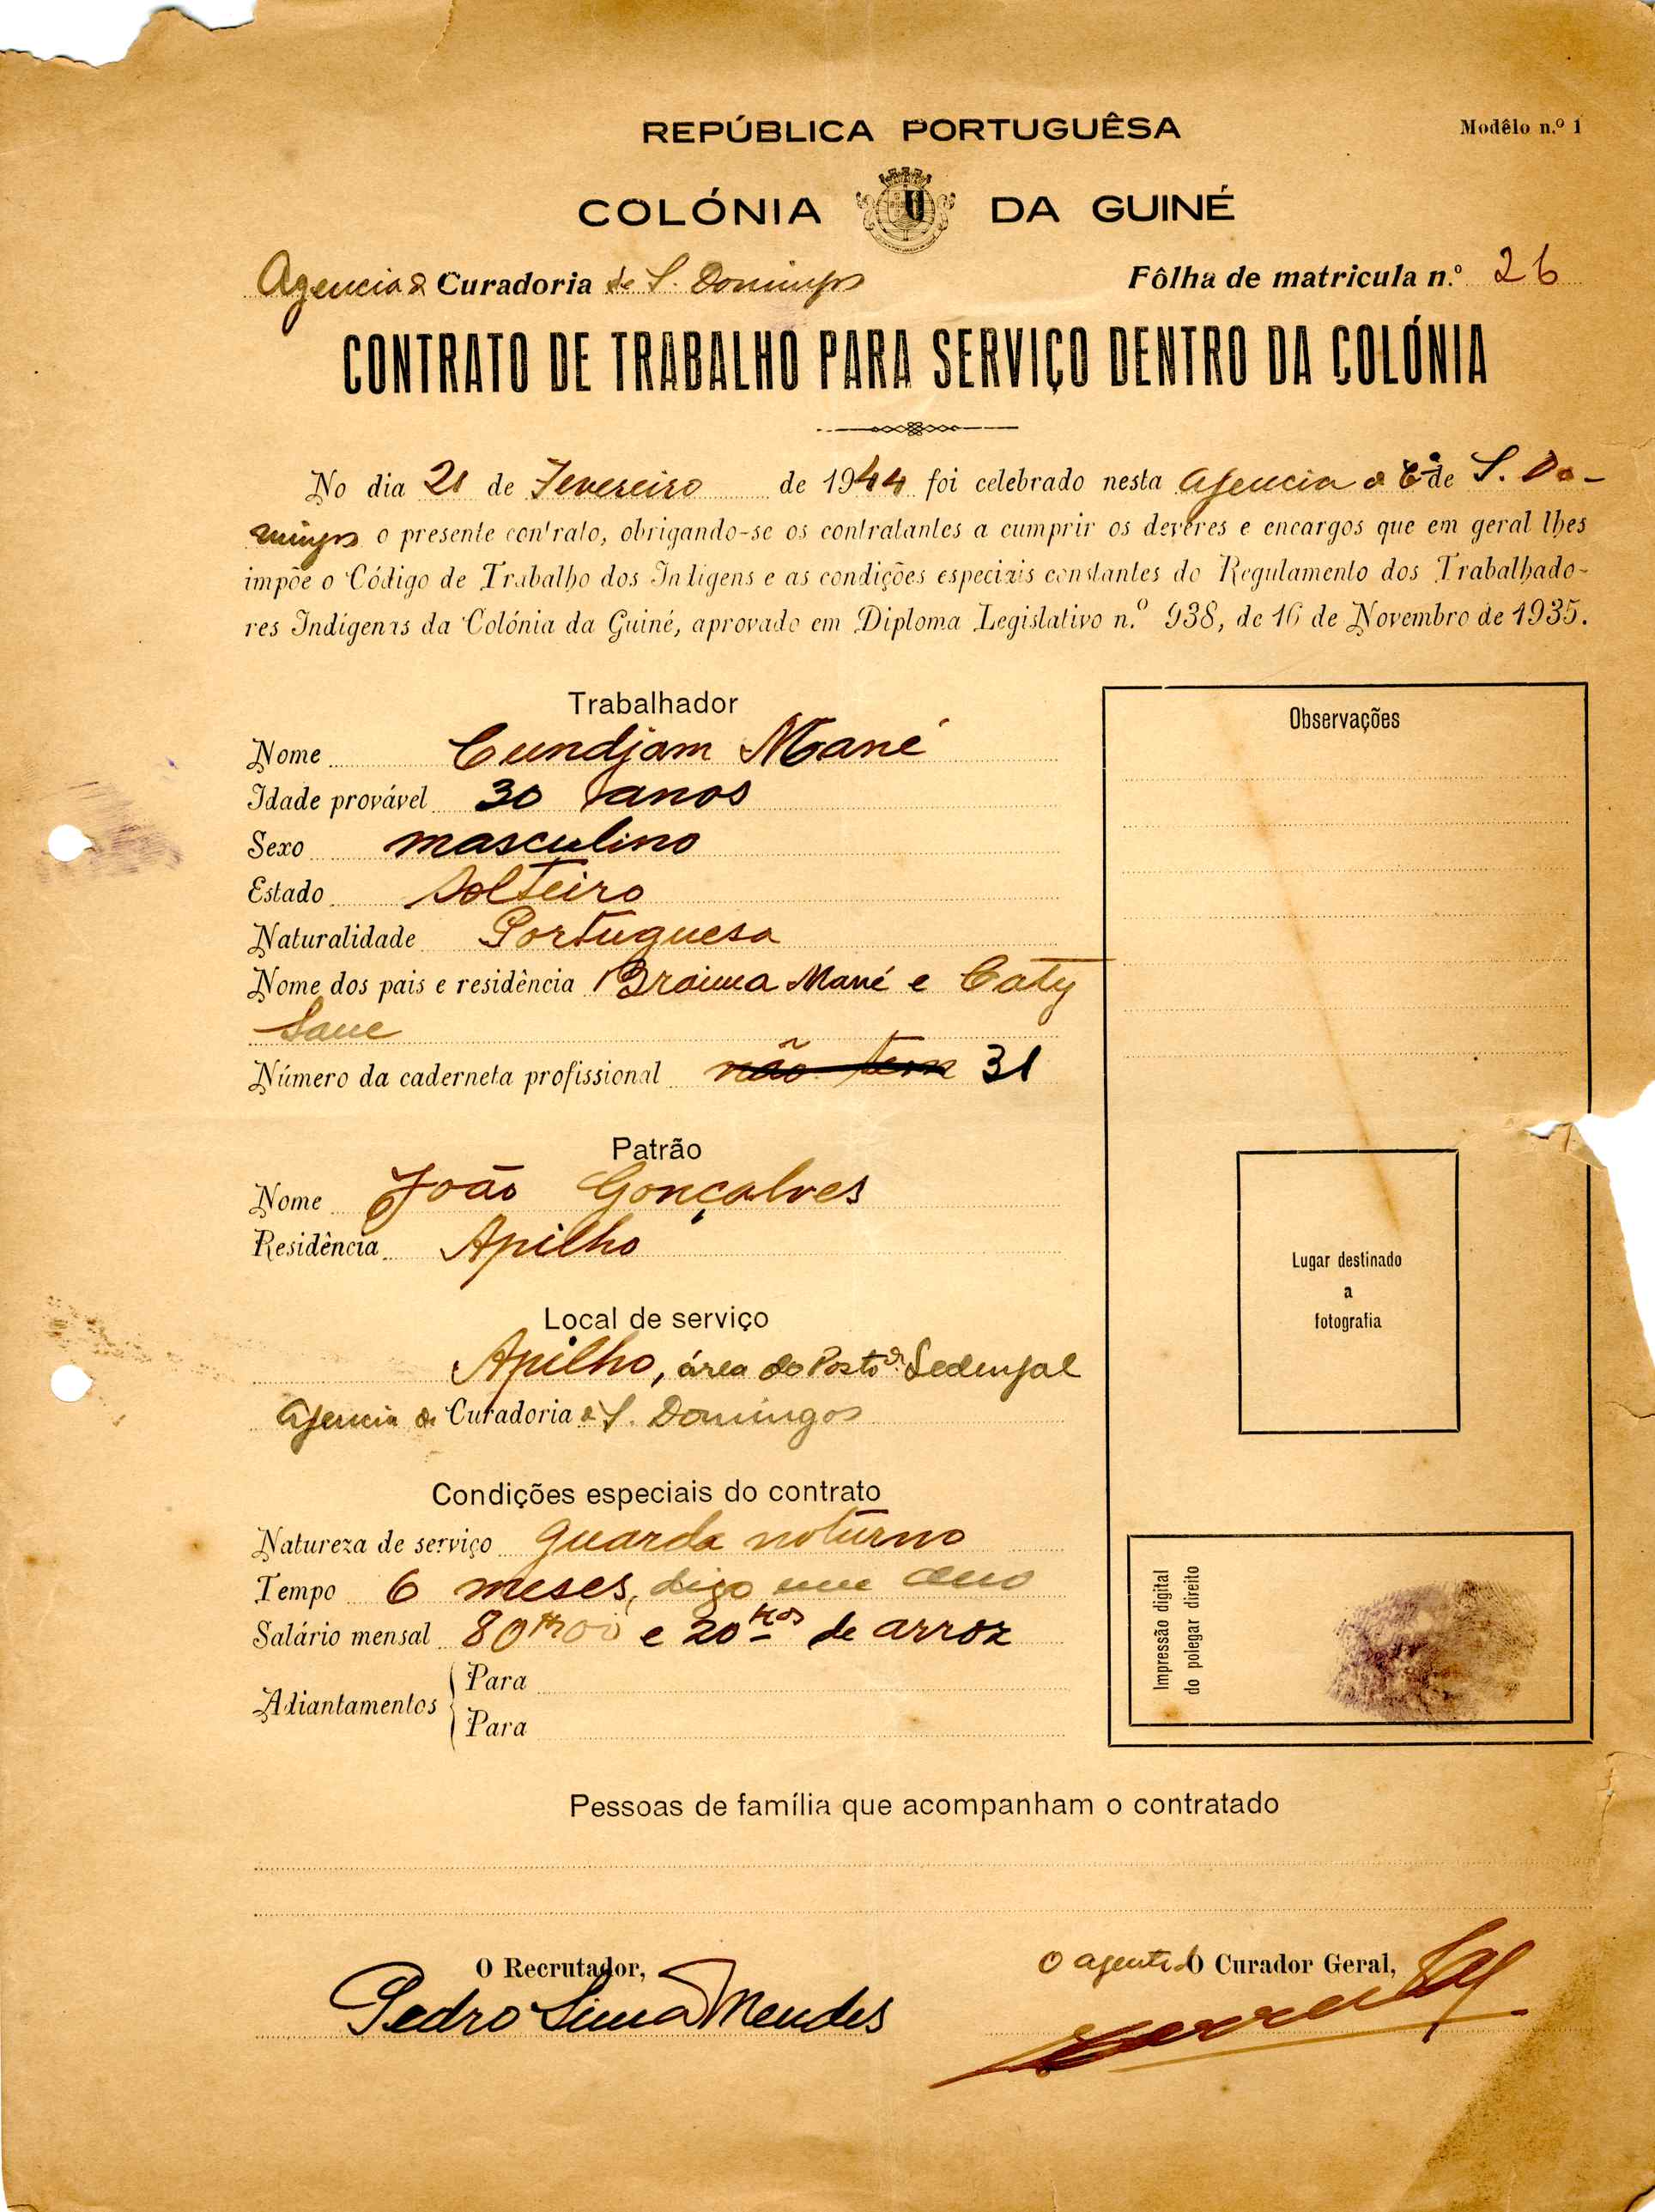 REPÚBLICA PORTUGUÊSA
Modêlo n.º 1
COLÓNIA DA GUINÉ
Agencia de Curadoria de S. Domingos
Fôlha de matricula n.º 26
CONTRATO DE TRABALHO PARA SERVIÇO DENTRO DA COLÓNIA
No dia 21 de Fevereiro de 1944 foi celebrado nesta Agencia de C. de S. Do-
mingos o presente contrato, obrigando-se os contratantes a cumprir os deveres e encargos que em geral lhes
impõe o Código de Trabalho dos Indígens e as condições especiais constantes do Regulamento dos Trabalhado-
res Indígenas da Colónia da Guiné, aprovado em Diploma Legislativo n.º 938, de 16 de Novembro de 1935.
Trabalhador
Nome Cundjam Mané
Idade provável 30 anos
Sexo masculino
Estado Solteiro
Naturalidade Portuguesa
Nome dos pais e residência Braima Mané e Caty
Sane
Número da caderneta profissional não tem 31
Patrão
Nome João Gonçalves
Residência Apilho
Local de serviço
Apilho, área do Posto de Sedengal
Agencia de Curadoria de S. Domingos
Condições especiais do contrato
Natureza de serviço guarda noturno
Tempo 6 meses, digo um ano
Salário mensal 80$00 e 20 kgs de arroz
Adiantamentos
Para
Para
Observações
Lugar destinado
a
fotografia
Impressão digital
do polegar direito
Pessoas de família que acompanham o contratado
O Recrutador,
Pedro Lima Mendes
O agente do O Curador Geral,